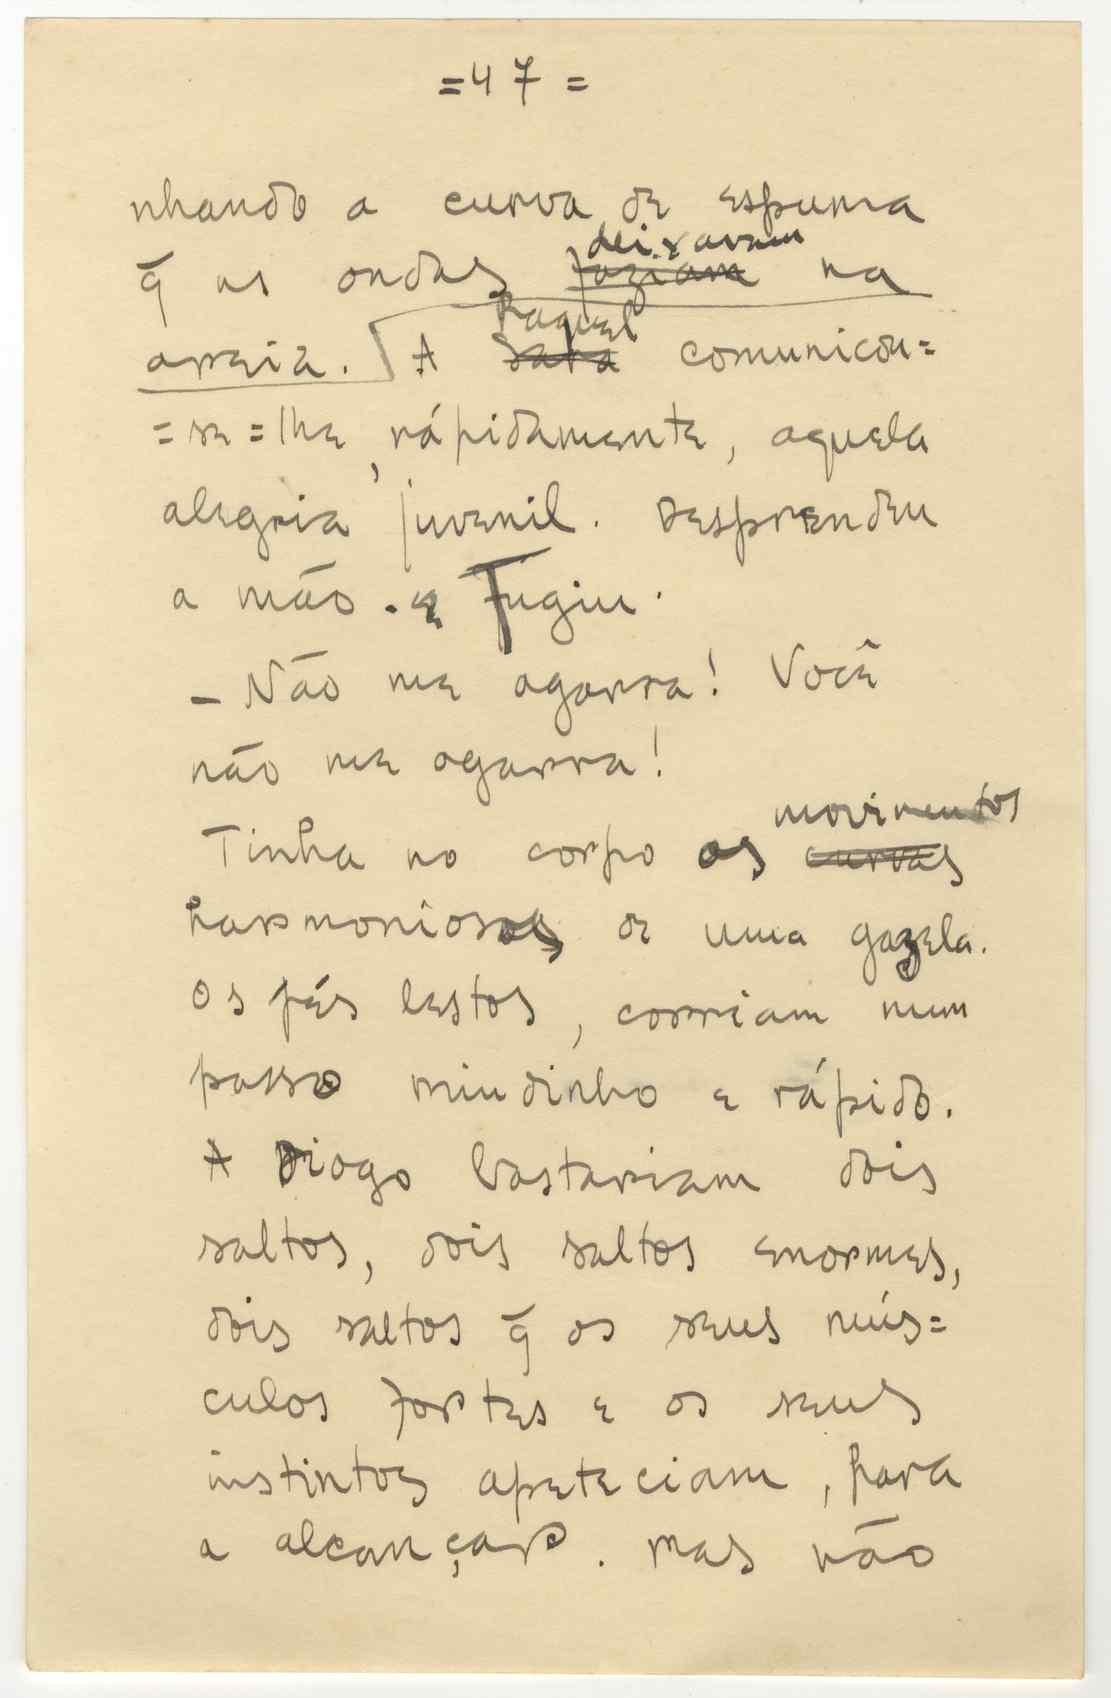 =47=
nhando a curva de espuma
deixavam
q̃ as ondas faziam na
Raquel
areia. A Sara comunicou=
=se=lhe, rápidamente, aquela
alegria juvenil. Desprendeu
a mão. e Fugiu.
– Não me agarra! Você
não me agarra!
movimentos
Tinha no corpo os curvas
harmoniosos de uma gazela.
Os pés lestos, corriam num
passo miudinho e rápido.
A Diogo bastariam dois
saltos, dois saltos enormes,
dois saltos q̃ os seus mús=
culos fortes e os seus
instintos apeteciam, para
a alcançar. Mas não